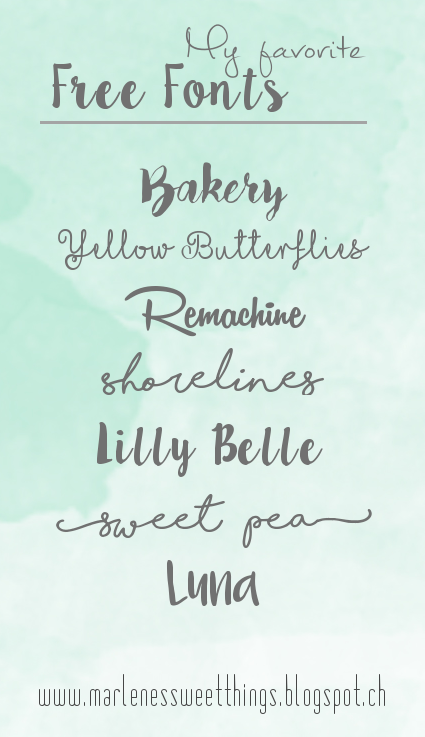 My favorite
Free Fonts
Bakery
Yellow Butterflies
Remachine
shorelines
Lilly Belle
sweet pea
Luna
www.marlenessweetthings.blogspot.ch